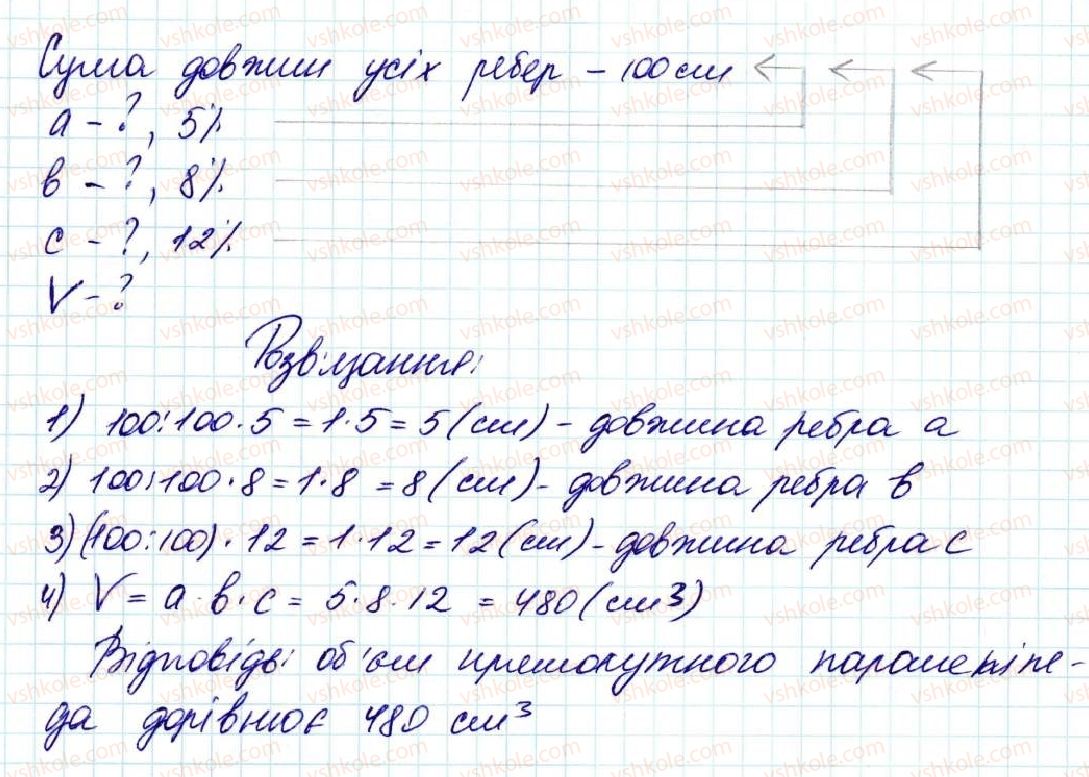 Сума довжин усіх ребер – 100 см
а – ?, 5%
в – ?, 8%
с – ?, 12%
V – ?
Розв'язання:
1) 100:100·5 = 1·5 = 5 (см) – довжина ребра а
2) 100:100·8 = 1·8 = 8 (см) – довжина ребра в
3) (100:100)·12 = 1·12 = 12 (см) – довжина ребра с
4) V = а·в·с = 5·8·12 = 480 (см3)
Відповідь: об'єм прямокутного паралелепіпе-
да дорівнює 480 см³